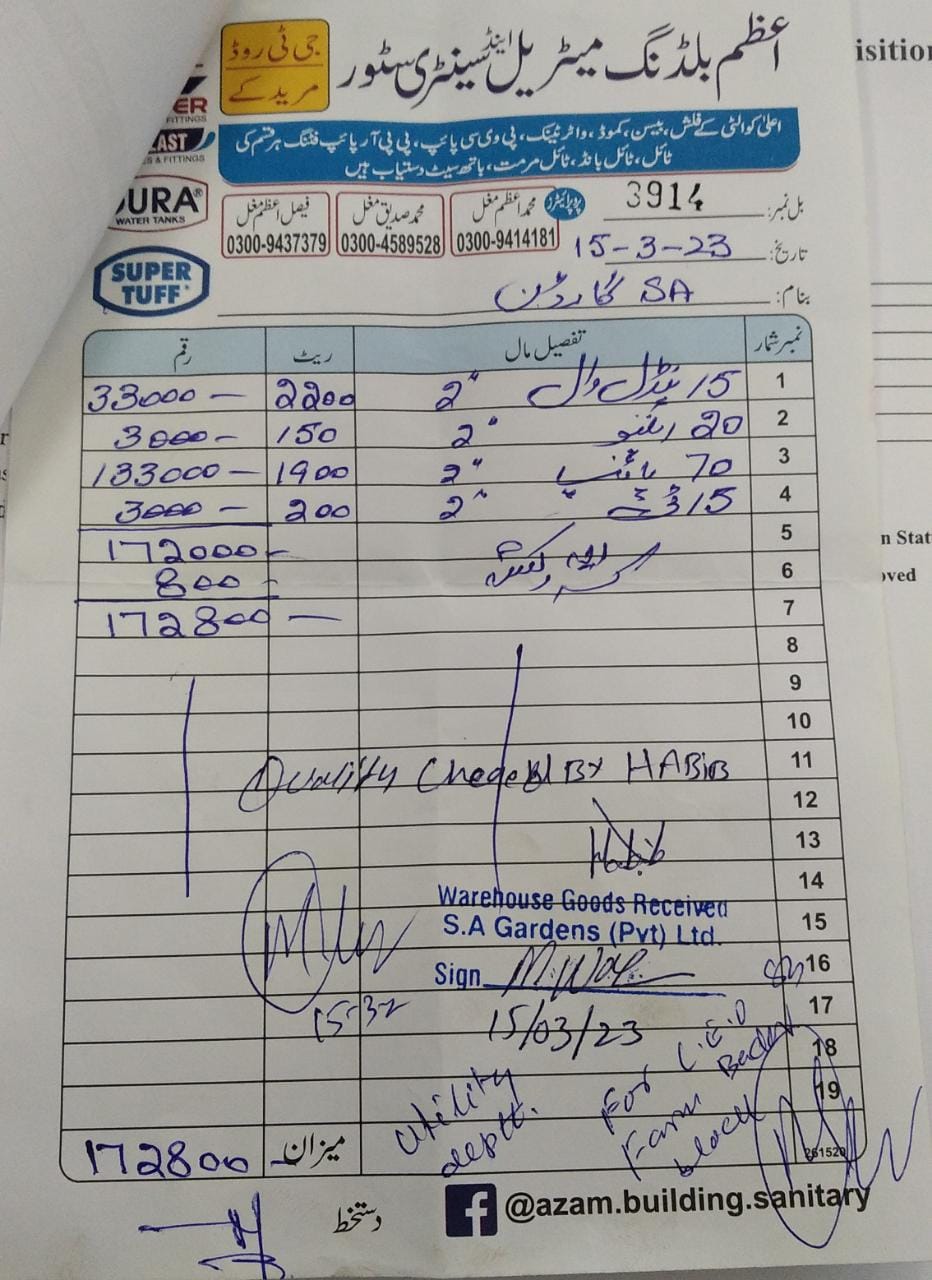 جی ٹی روڈ
مریدکے
اعظم بلڈنگ میٹریل اینڈ سینٹری سٹور
isition
ER
FITTINGS
AST
S & FITTINGS
اعلیٰ کوالٹی کے فلش، بیسن، کموڈ، واٹر ٹینک، پی وی سی پائپ، پی پی آر پائپ فٹنگ ہر قسم کی
ٹائل، ٹائل بانڈ، ٹائل مرمت، باتھ سیٹ دستیاب ہیں
DURA®
WATER TANKS
SUPER
TUFF
پروپرائیٹرز
محمد اعظم مغل
0300-9414181
محمد صدیق مغل
0300-4589528
فیصل اعظم مغل
0300-9437379
بل نمبر: 3914
تاریخ: 15-3-23
بنام: SA گارڈن
نمبر شمار تفصیل مال ریٹ رقم
1 15 ہینڈل وال 2" 2200 33000 —
2 20 2" 150 3000 —
3 70 پائپ 2" 1900 133000 —
4 15 2" 200 3000 —
5 172000 —
6 رکشہ 800 —
7 172800 —
8
9
10
11 Quality Checked By HABiB
12
13 Habib
14
Warehouse Goods Received
15 S.A Gardens (Pvt) Ltd.
16 Sign
17 15/03/23
18
19
utility
deptt.
For L.E.O
Farm
block
میزان 172800
261520
دستخط
@azam.building.sanitary
n Stat
oved